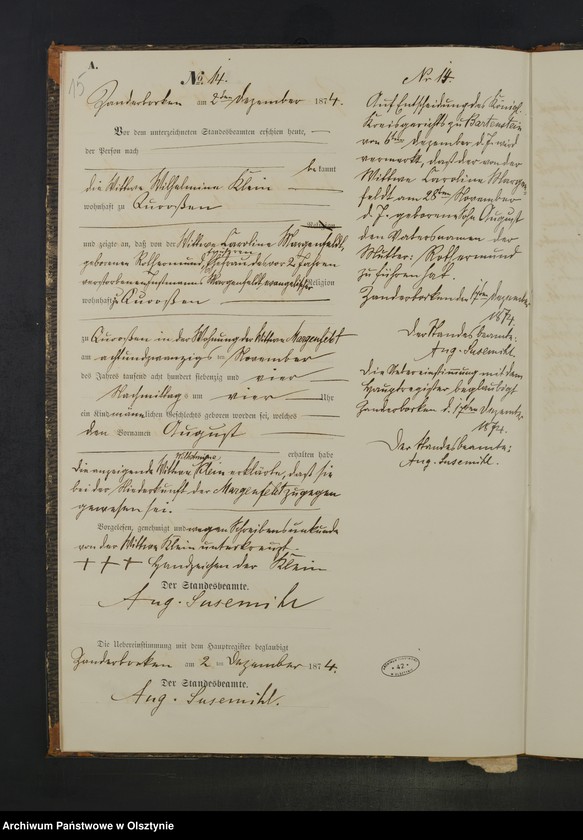 A.
15
No. 14.
Zanderborken am 2ten Dezember 1874.
Vor dem unterzeichneten Standesbeamten erschien heute,
der Person nach
bekannt
die Wittwe Wilhelmine Klein
wohnhaft zu Quorßen
und zeigte an, daß von der Wittwe Caroline Margenfeldt,
geborenen Rothermund, Ehefrau des vor 2 Jahren
verstorbenen Margenfeldt, evangelischer Religion
wohnhaft zu Quorßen
zu Quorßen in der Wohnung der Wittwe Margenfeldt
am achtundzwanzigsten November
des Jahres tausend acht hundert siebenzig und vier
Nachmittags um vier Uhr
ein Kind männlichen Geschlechts geboren worden sei, welches
den Vornamen August
erhalten habe
Die anzeigende Wittwe Wilhelmine Klein erklärte, daß sie
bei der Niederkunft der Margenfeldt zugegen
gewesen sei.
Vorgelesen, genehmigt und wegen Schreibensunkunde
von der Wittwe Klein unterkreuzt
+ + + Handzeichen der Klein
Der Standesbeamte.
Aug. Susemihl
Die Uebereinstimmung mit dem Hauptregister beglaubigt
Zanderborken am 2 ten Dezember 1874.
Der Standesbeamte.
Aug. Susemihl.
Nr. 14.
Auf Entscheidung des Königl.
Kreisgerichts zu Bartenstein
vom 6ten Dezember d. J. wird
vermerkt, daß der von der
Wittwe Caroline Margen
feldt am 28ten November
d. J. geborene Sohn August
den Vatersnamen der
Mutter: Rothermund
zu führen hat.
Zanderborken den 17ten Dezember
1874.
Der Standesbeamte:
Aug. Susemihl.
Die Uebereinstimmung mit dem
Hauptregister beglaubigt
Zanderborken d. 17ten Dezember
1874.
Der Standesbeamte:
Aug. Susemihl.
* 42 *
Archiwum Państwowe w Olsztynie